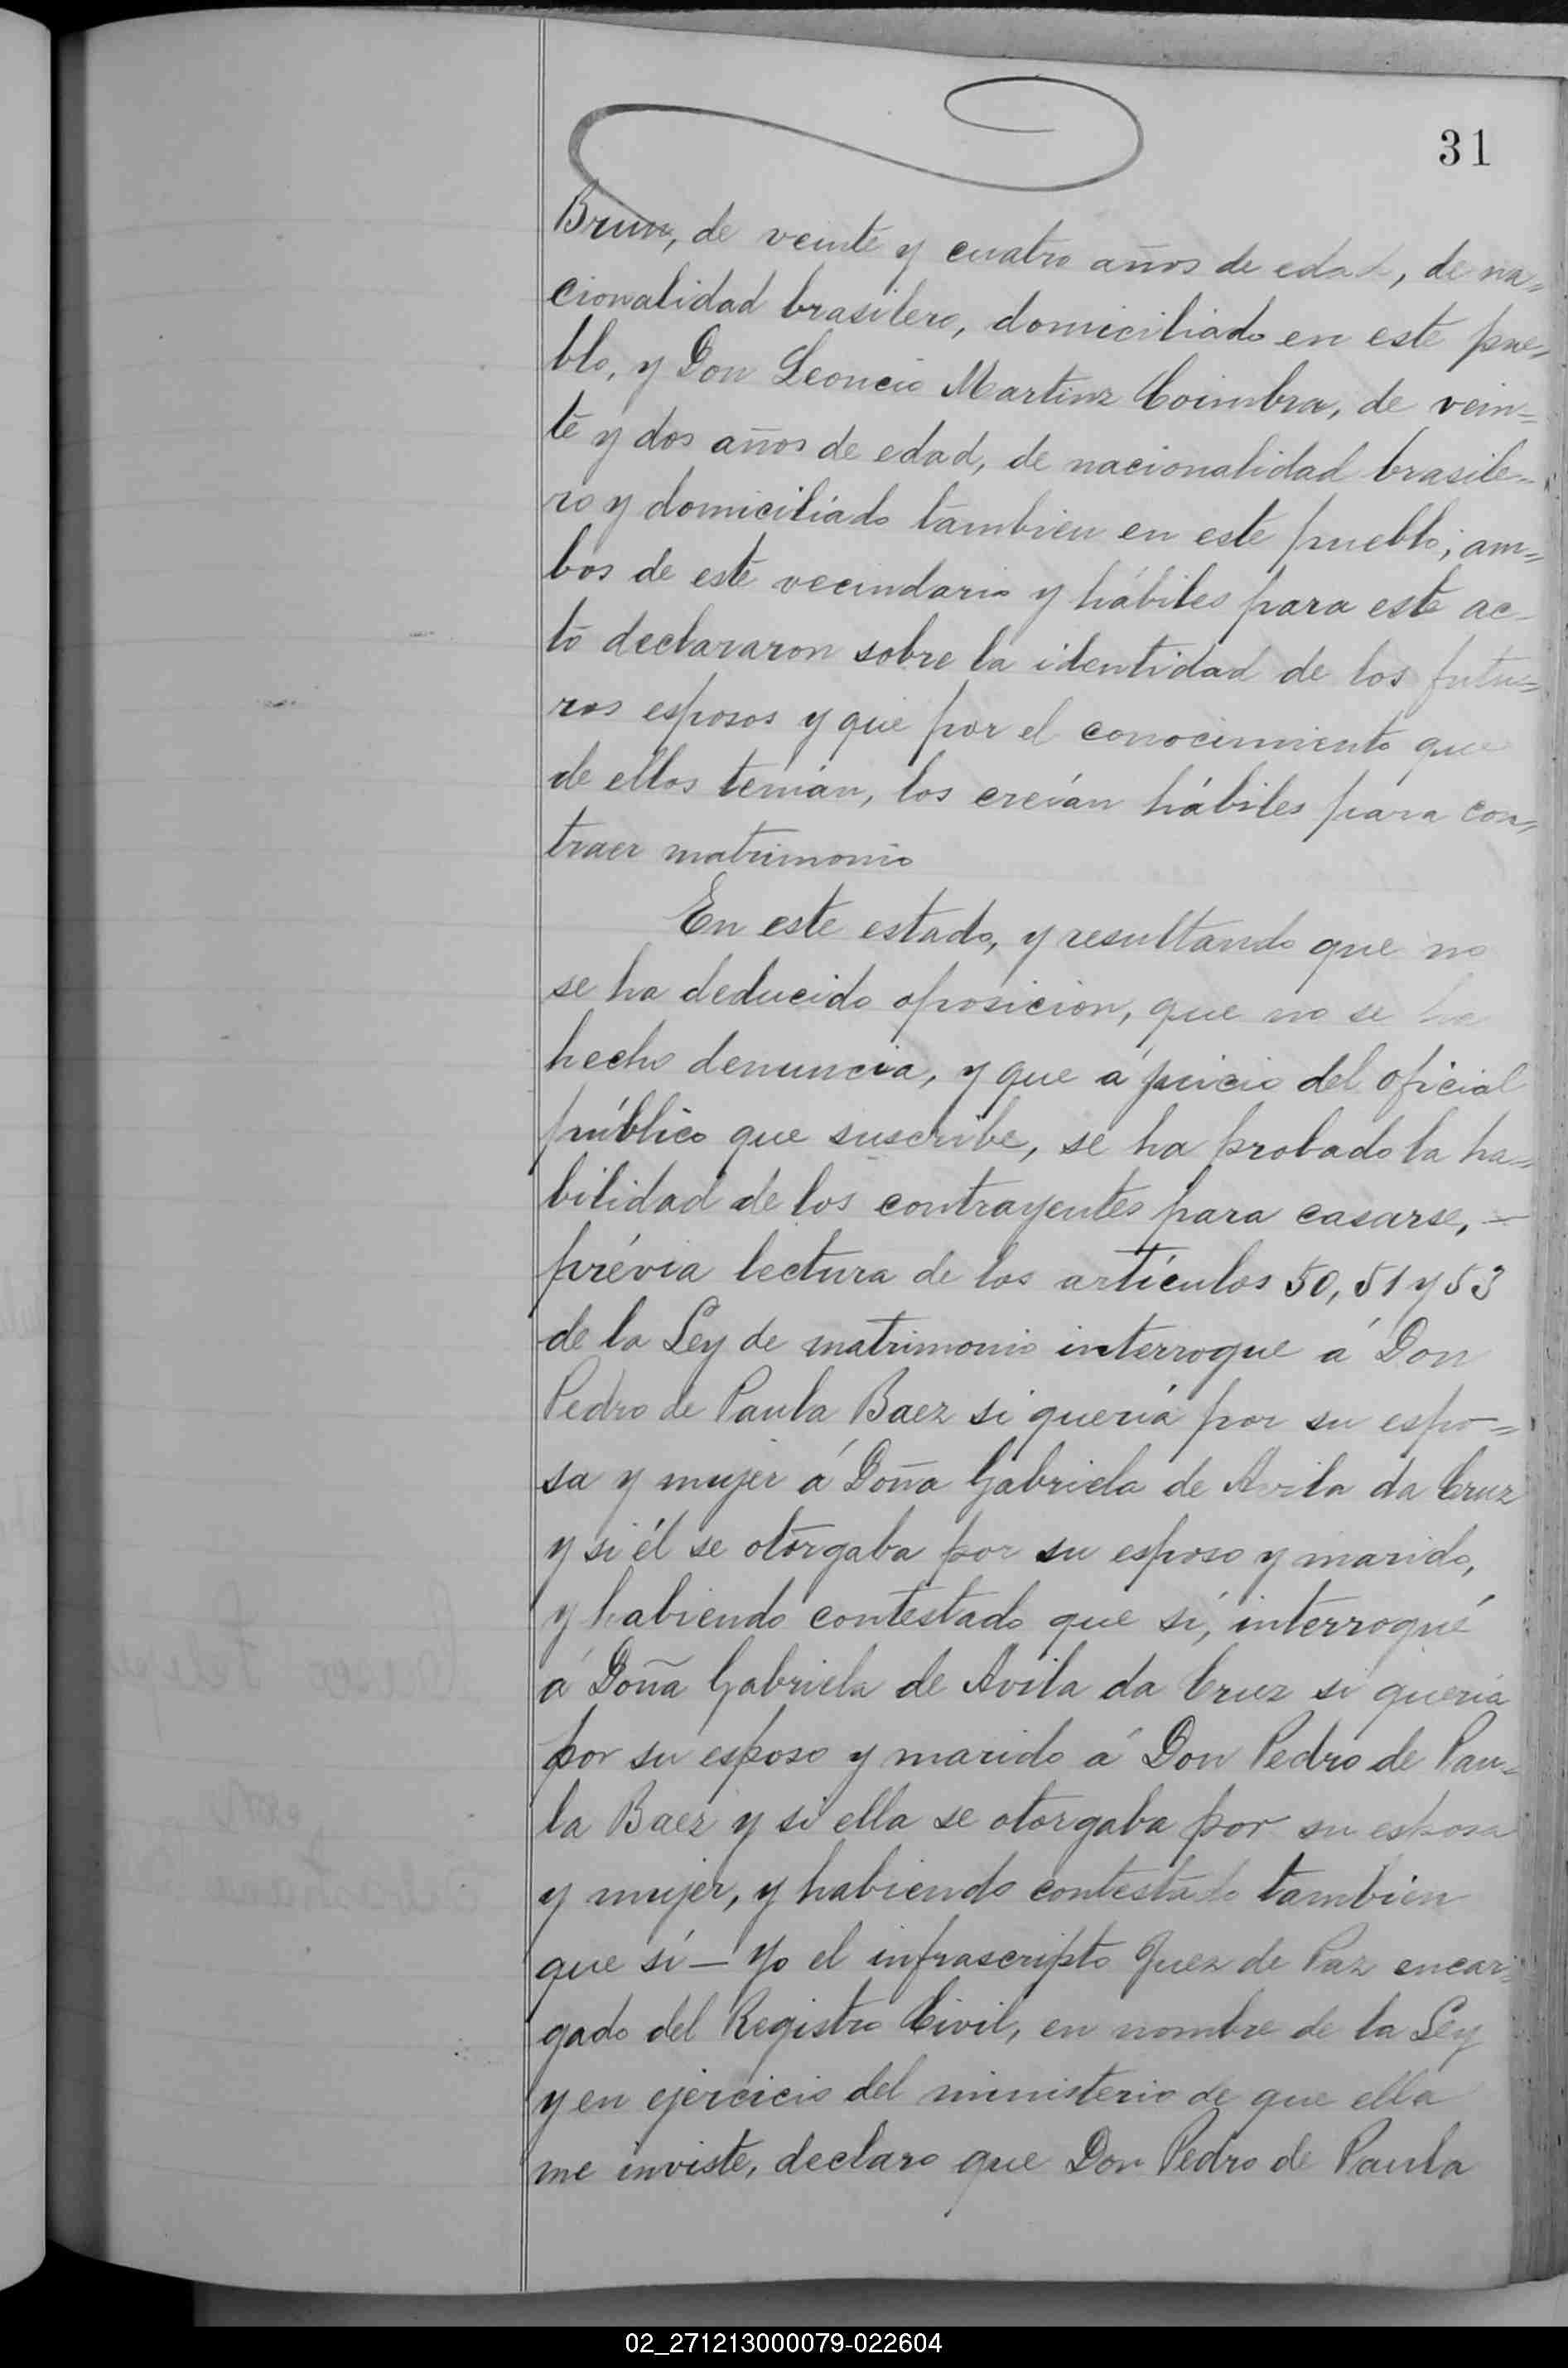 31
Brun, de veinte y cuatro años de edad, de na=
cionalidad brasilero, domiciliado en este pue=
blo, y Don Leoncio Martinz Coimbra, de vein=
te y dos años de edad, de nacionalidad brasile=
ro y domiciliado tambien en este pueblo; am=
bos de este vecindario y hábiles para este ac-
to declararon sobre la identidad de los futu=
ros esposos y que por el conocimiento que
de ellos tenían, los creían hábiles para con=
traer matrimonio
En este estado, y resultando que no
se ha deducido oposicion, que no se ha
hecho denuncia, y que á juicio del oficial
público que suscribe, se ha probado la ha=
bilidad de los contrayentes para casarse, -
prévia lectura de los artículos 50, 51 y 53
de la Ley de matrimonio interroque á Don
Pedro de Paula Baez si quería por su espo=
sa y mujer á Doña Gabriela de Avila da Cruz
y si él se otorgaba por su esposo y marido,
y habiendo contestado que sí, interroqué
á Doña Gabriela de Avila da Cruz si quería
por su esposo y marido á Don Pedro de Pau=
la Baez y si ella se otorgaba por su esposa
y mujer, y habiendo contestado tambien
que sí — Yo el infrascripto Juez de Paz encar=
gado del Registro Civil, en nombre de la Ley
y en ejercicio del ministerio de que ella
me inviste, declaro que Don Pedro de Paula
02_271213000079-022604